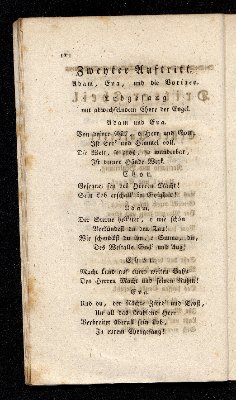 Zweyter Auftritt.
Adam, Eva, und die Vorigen.
Lobgesang
mit abwechselndem Chore der Engel.
Adam und Eva.
Von deiner Güt', o Herr und Gott,
Ist Erd' und Himmel voll.
Die Welt, so groß, so wunderbar,
Ist deiner Hände Werk.
Chor.
Gesegnet sey des Herren Macht!
Sein Lob erschall' in Ewigkeit!
Adam.
Der Sterne hellster, o wie schön
Verkündest du den Tag!
Wie schmückst du ihn, o Sonne, du,
Des Weltalls Seel' und Aug!
Chor.
Macht kund auf eurer weiten Bahn
Des Herren Macht und seinen Ruhm!
Eva.
Und du, der Nächte Zierd' und Trost,
Und all das strahlend Heer
Verbreitet überall sein Lob,
In euerm Chorgesang!